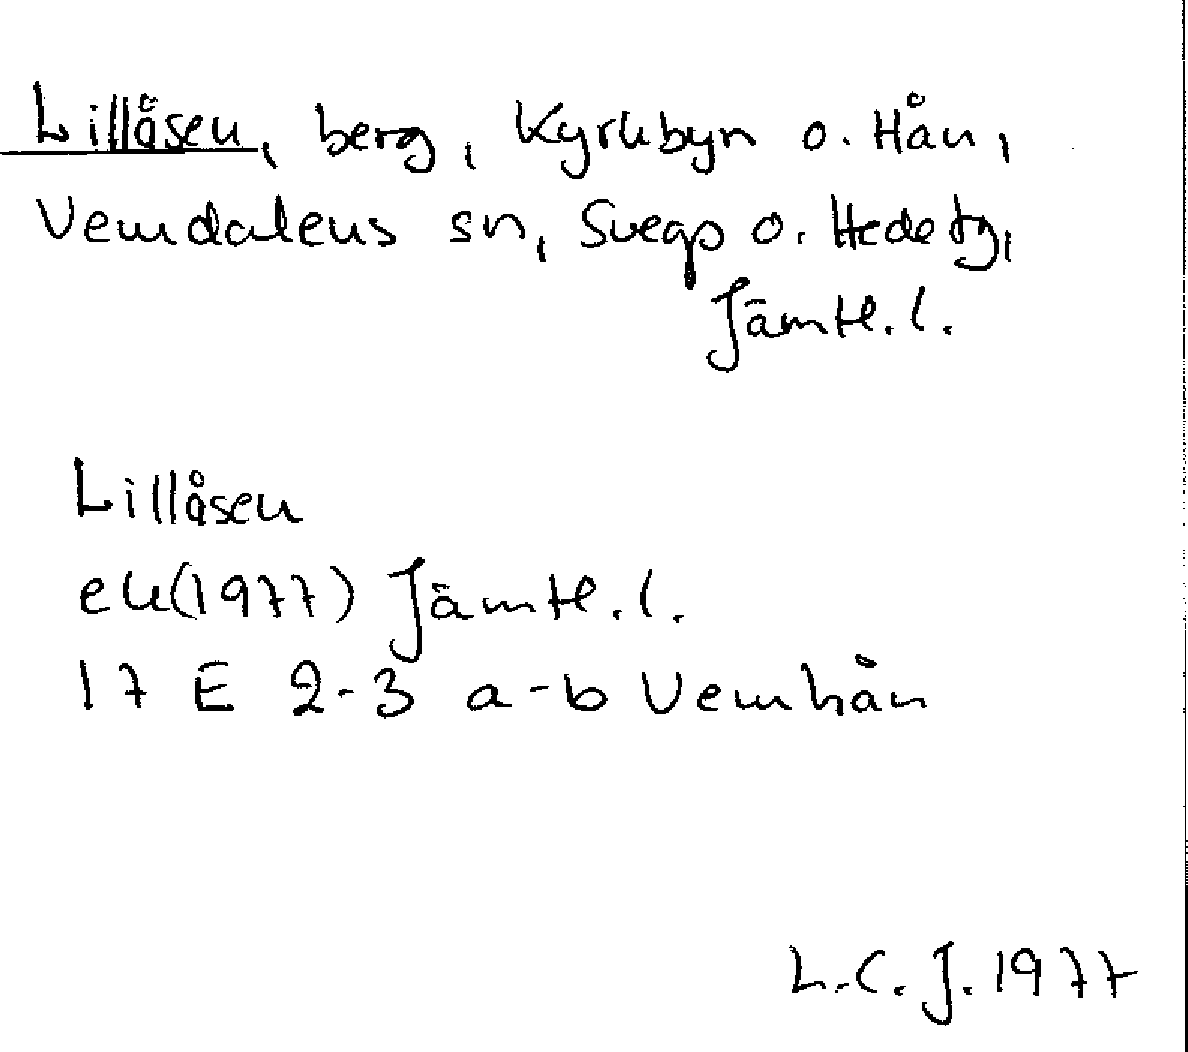 Lillåsen, berg, Kyrkbyn o. Hån,
Vemdalens sn, Svegs o. Hede tg,
Jämtl. l.
Lillåsen
ek(1977) Jämtl. l.
17 E 2-3 a-b Vemhån
L.C.J. 1977